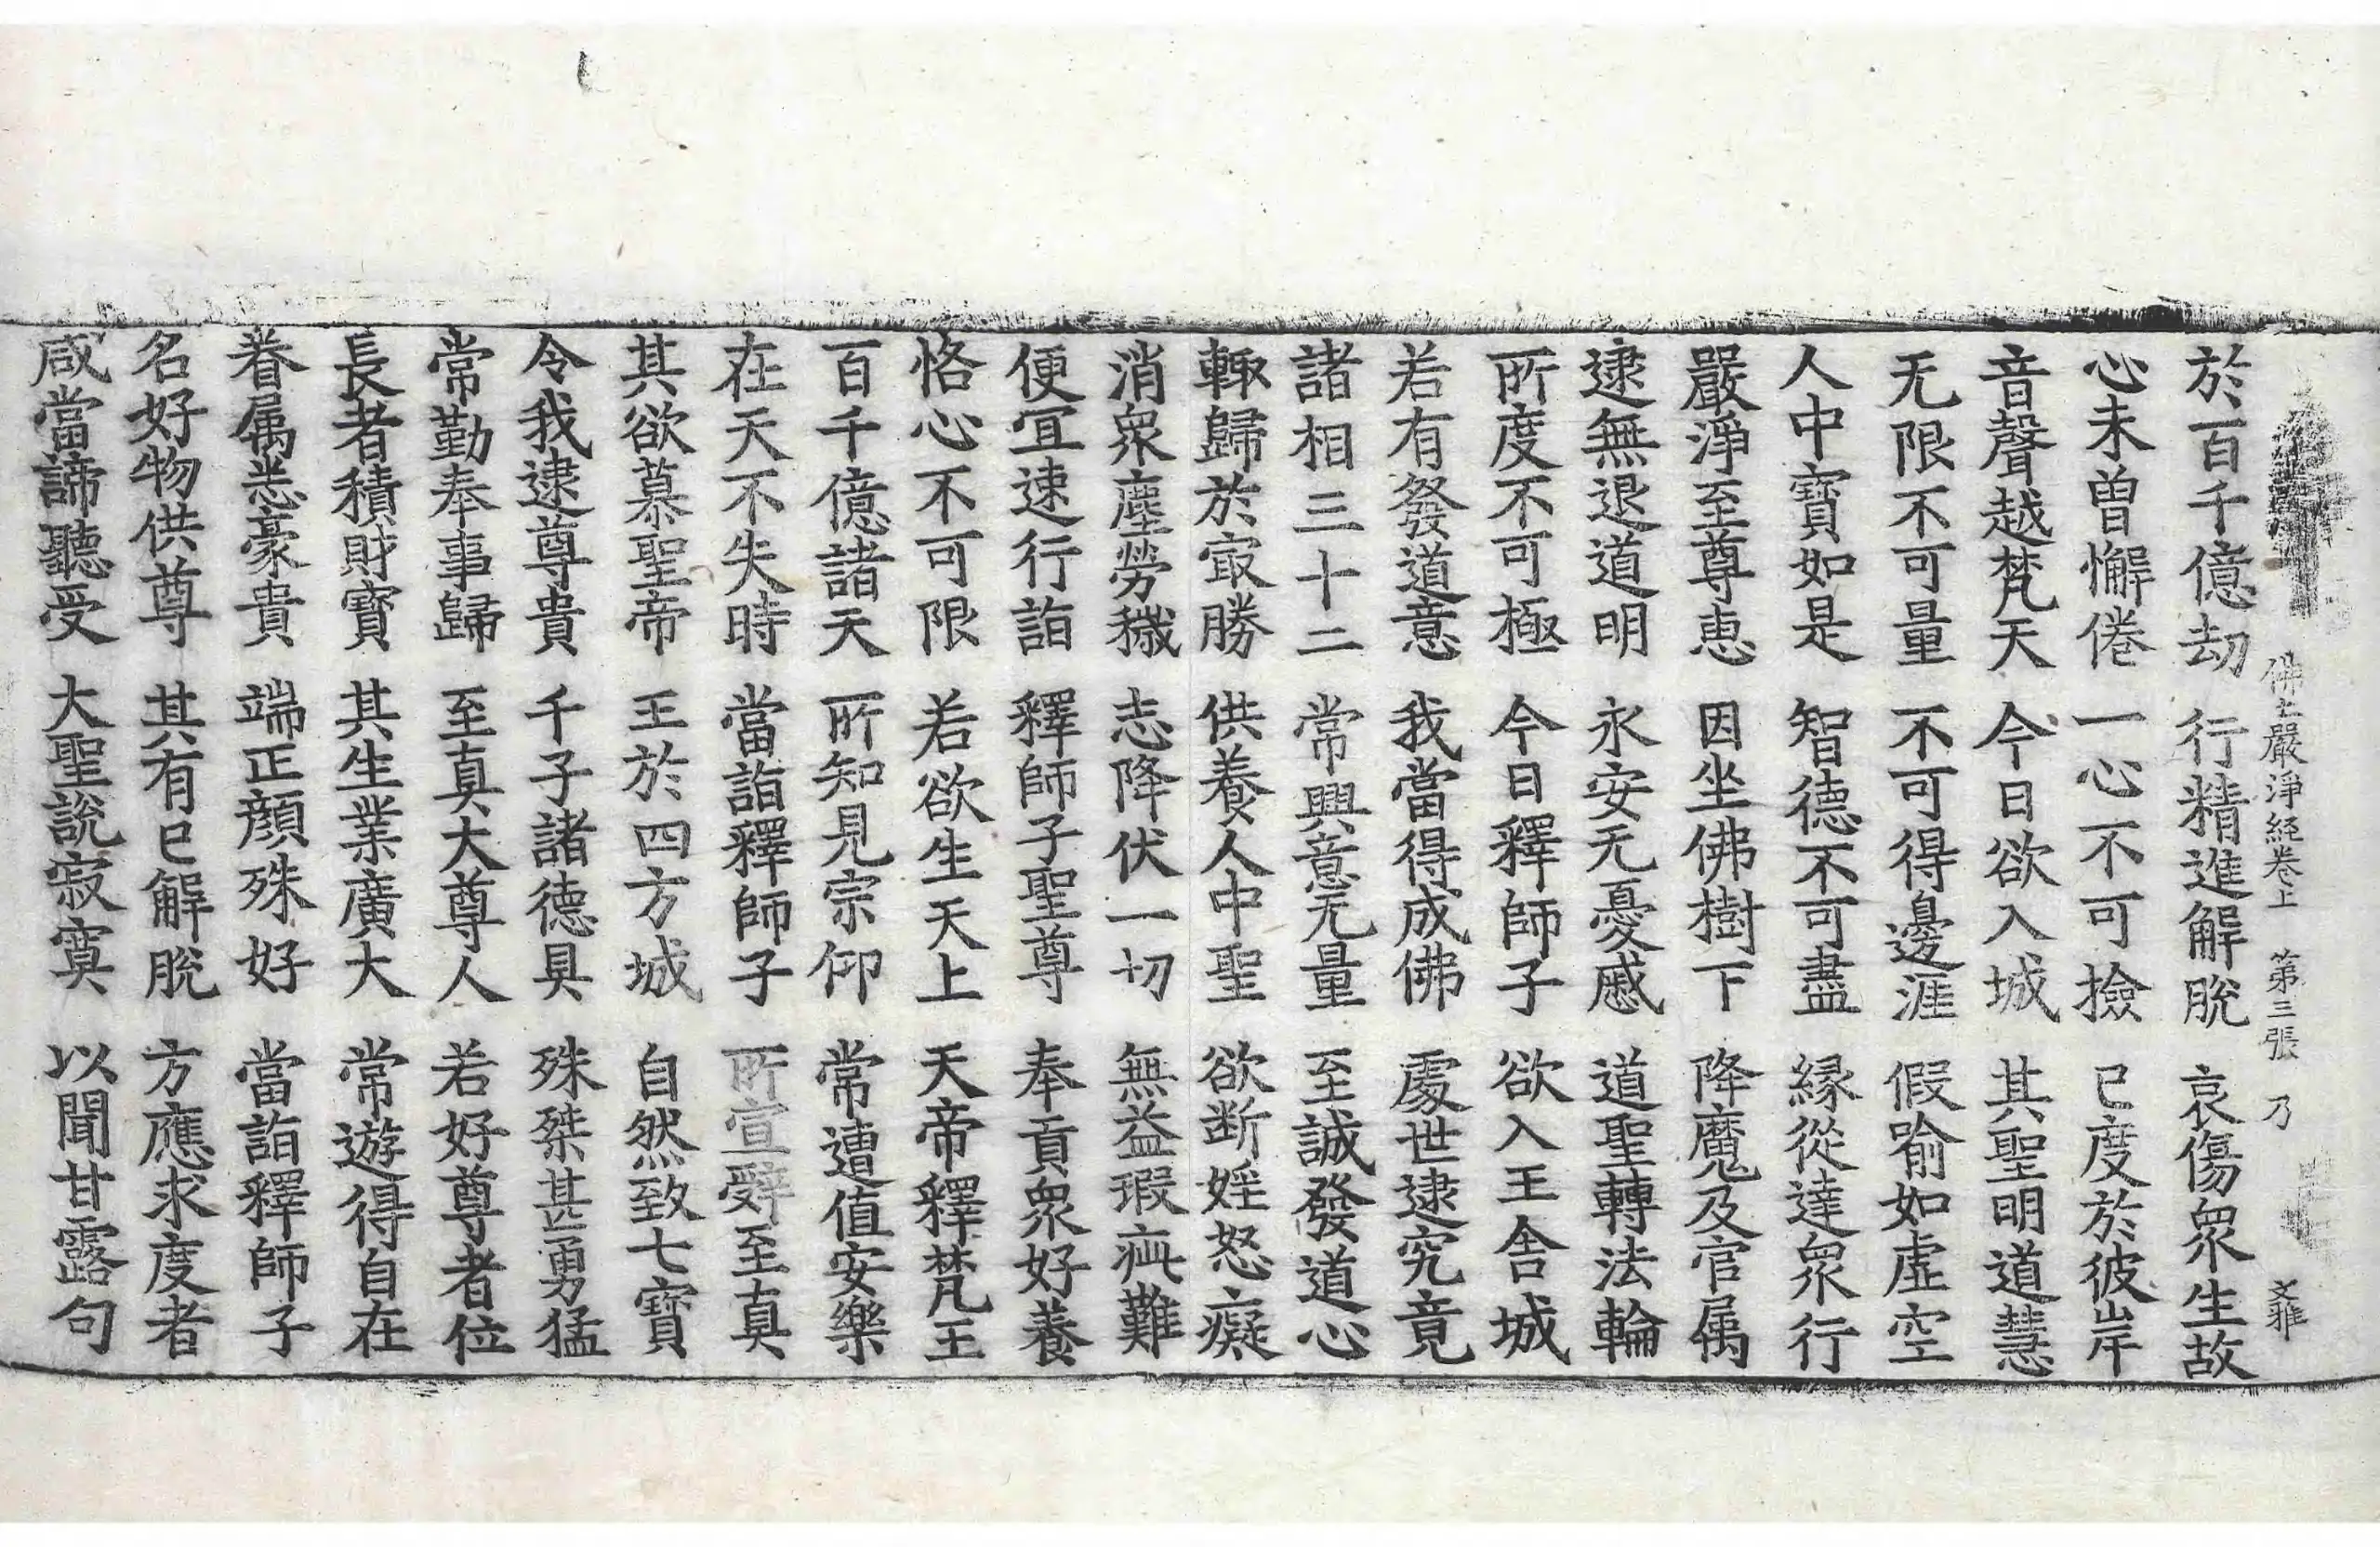 佛土嚴淨經卷上 第三張 乃
於百千億劫 行精進解脫 哀傷衆生故
心未曽懈倦 一心不可撿 已度於彼岸
音聲越梵天 今日欲入城 其聖明道慧
无限不可量 不可得邊涯 假喻如虛空
人中寶如是 智德不可盡 緣從達衆行
嚴淨至尊恵 因坐佛樹下 降魔及官属
逮無退道明 永安无憂慼 道聖轉法輪
所度不可極 今日釋師子 欲入王舍城
若有發道意 我當得成佛 處世逮究竟
諸相三十二 常興意无量 至誠發道心
輙歸於冣勝 供養人中聖 欲断婬怒癡
消衆塵勞穢 志降伏一切 無益瑕疵難
便冝速行詣 釋師子聖尊 奉貢衆好養
恪心不可限 若欲生天上 天帝釋梵王
百千億諸天 所知見宗仰 常遭值安樂
在天不失時 當詣釋師子 所宣辭至真
其欲慕聖帝 王於四方城 自然致七寶
令我逮尊貴 千子諸德具 殊桀甚勇猛
常勤奉事歸 至真大尊人 若好尊者位
長者積財寳 其生業廣大 常遊得自在
眷属悉豪貴 端正顔殊好 當詣釋師子
名好物供尊 其有已解脫 方應求度者
咸當諦聽受 大聖說寂寞 以聞甘露句